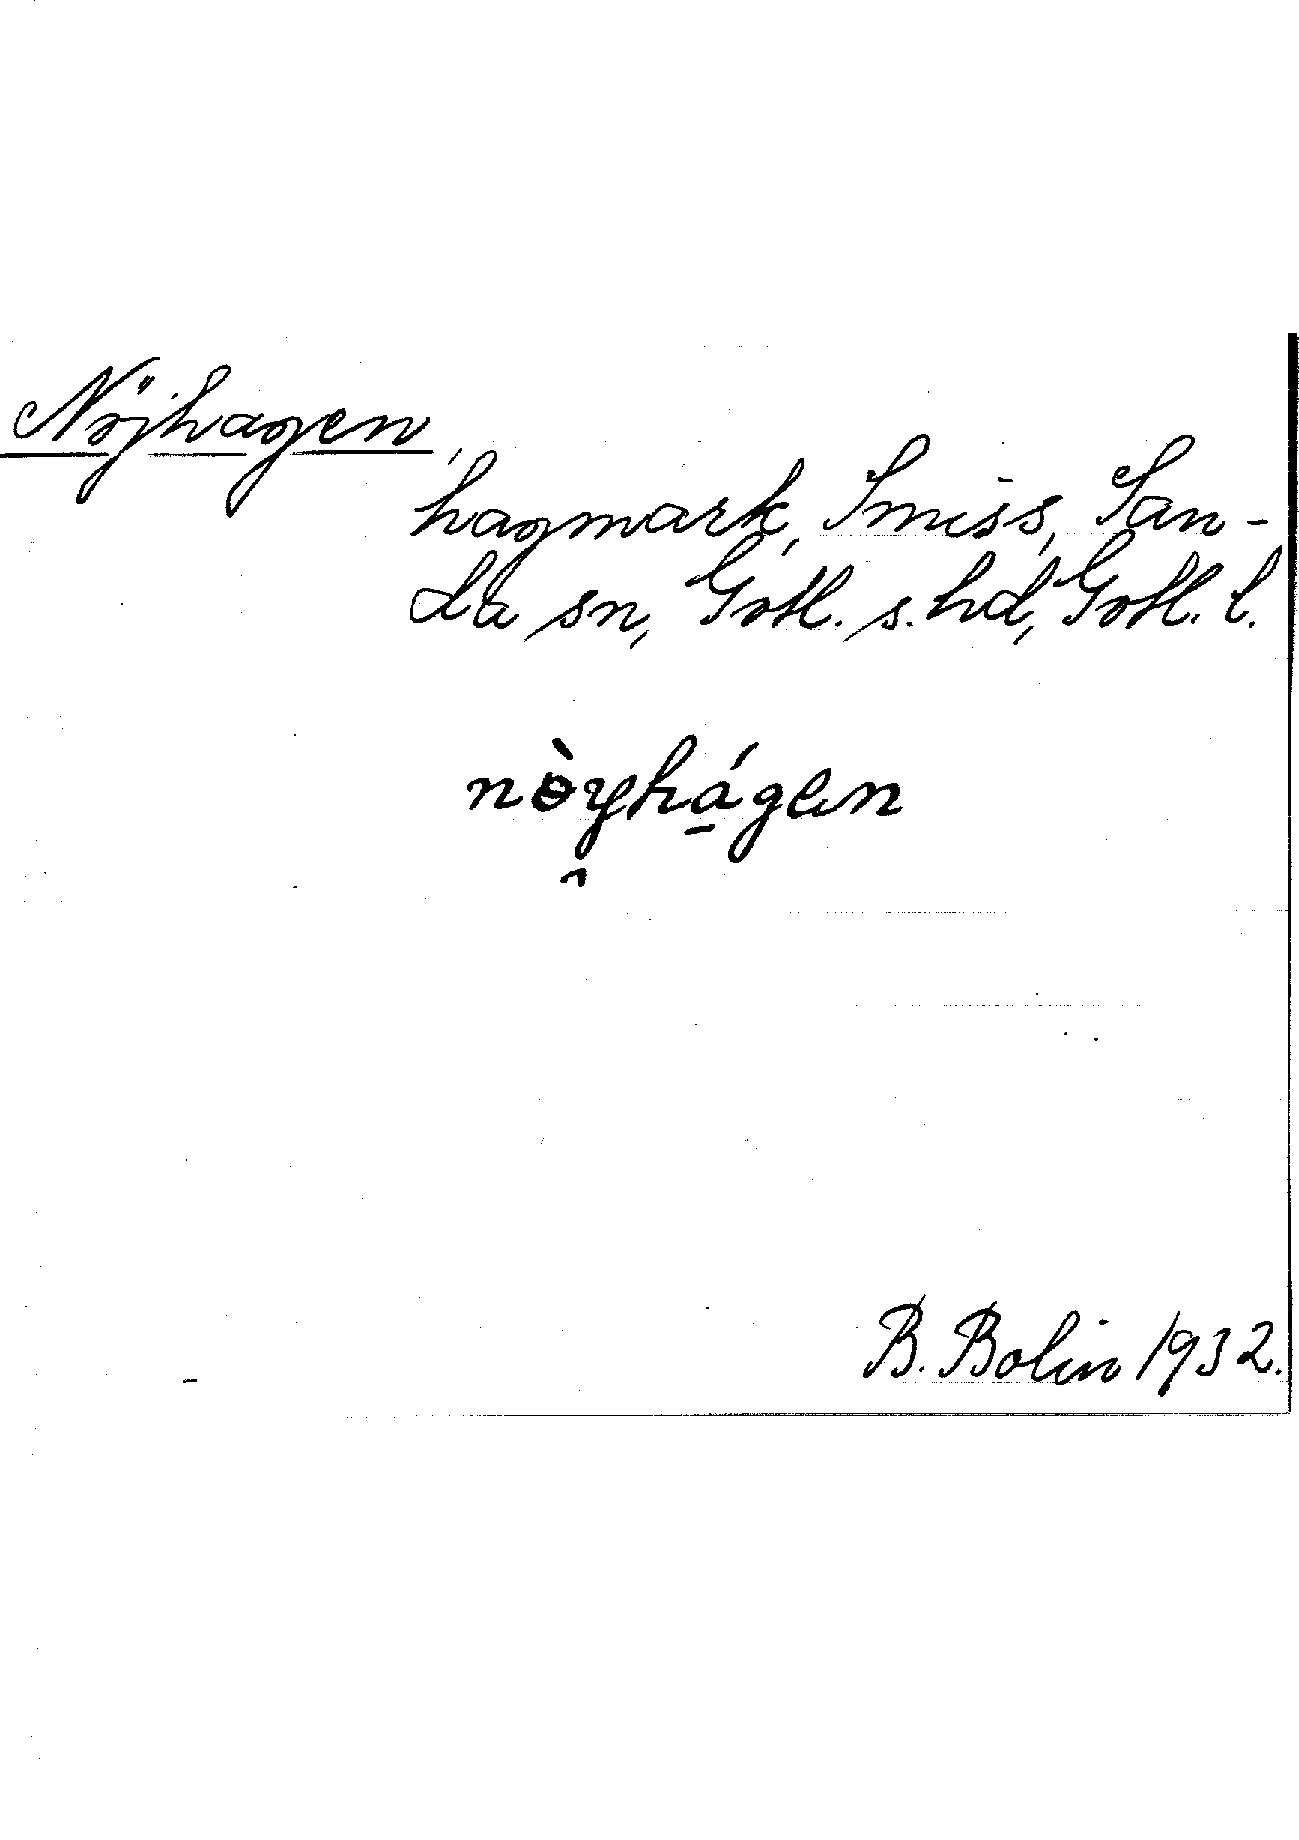 Nöjhagen,
hagmark, Smiss, San-
da sn, Gotl. s. hd, Gotl. l.
nɵ̀y̑há̱gen
B. Bolin 1932.